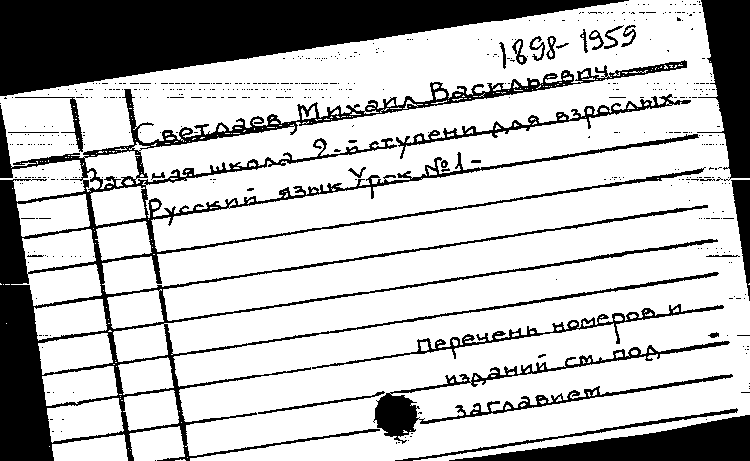 1898-1959
Светлаев, Михаил Васильевич.
Заочная школа 2-й ступени для взрослых.
Русский язык Урок №1-
Перечень номеров и
изданий см. под
заглавием